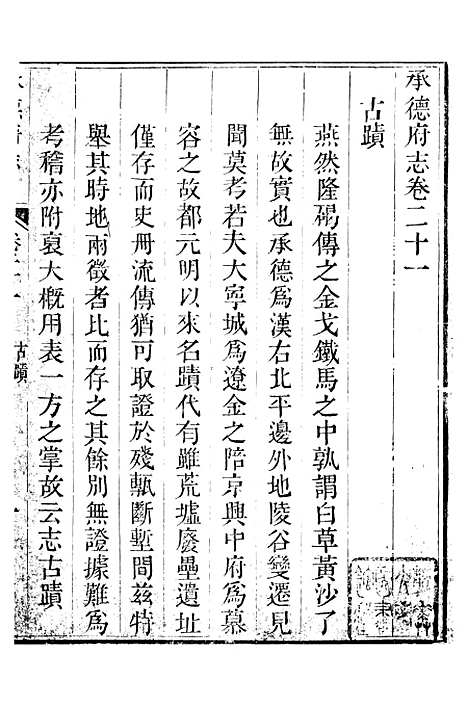 承德府志卷二十一
古蹟
燕然隆碣傳之金戈鐵馬之中孰謂白草黃沙了
無故實也承德爲漢右北平邊外地陵谷變遷見
聞莫考若夫大寧城爲遼金之陪京興中府爲慕
容之故都元明以來名蹟代有雖荒墟廢壘遺址
僅存而史册流傳猶可取證於殘甎斷塹間茲特
舉其時地兩徵者比而存之其餘別無證據難爲
考稽亦附裒大概用表一方之掌故云志古蹟
古蹟